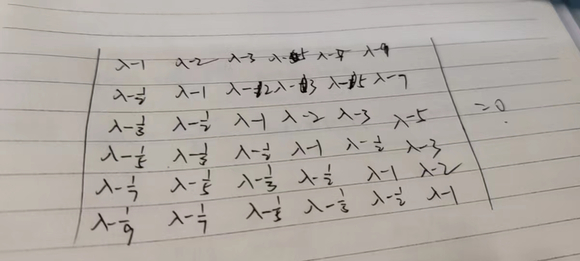 λ-1 λ-2 λ-3 λ-5 λ-7 λ-9
λ-1/2 λ-1 λ-2 λ-3 λ-5 λ-7
λ-1/3 λ-1/2 λ-1 λ-2 λ-3 λ-5
λ-1/5 λ-1/3 λ-1/2 λ-1 λ-1/2 λ-3 =0.
λ-1/7 λ-1/5 λ-1/3 λ-1/2 λ-1 λ-2
λ-1/9 λ-1/7 λ-1/5 λ-1/3 λ-1/2 λ-1